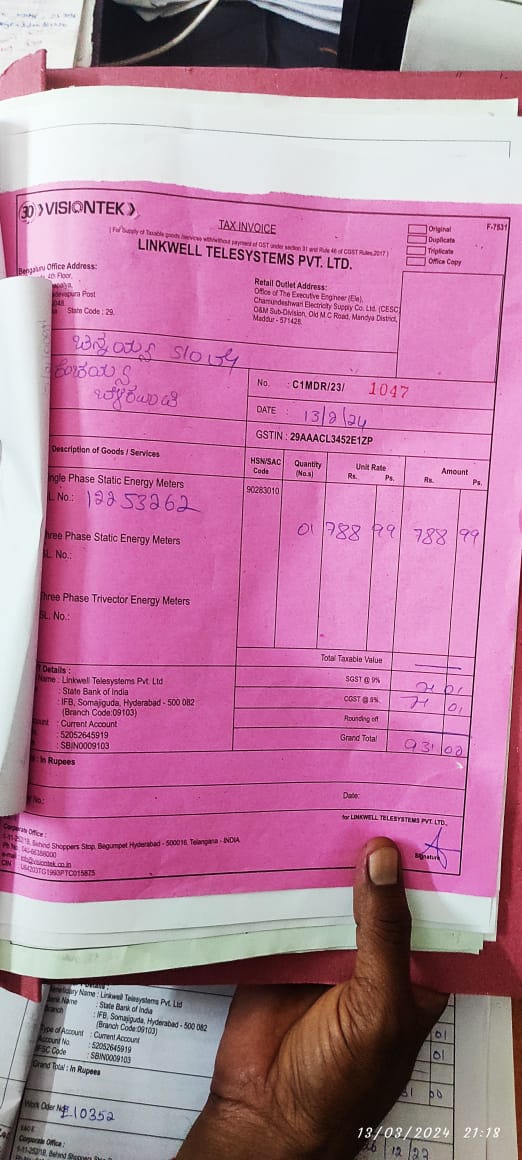 VISIONTEK
TAX INVOICE
( For Supply of Taxable goods /services with/without payment of GST under section 31 and Rule 46 of CGST Rules,2017 )
LINKWELL TELESYSTEMS PVT. LTD.
F-7531
Original
Duplicate
Triplicate
Office Copy
Bengaluru Office Address:
4th Floor,
Post
State Code : 29.
Retail Outlet Address:
Office of The Executive Engineer (Ele),
Chamundeshwari Electricity Supply Co. Ltd. (CESC)
O&M Sub-Division, Old M.C Road, Mandya District,
Maddur - 571428.
No. : C1MDR/23/ 1047
DATE : 13/2/24
GSTIN : 29AAACL3452E1ZP
Description of Goods / Services
HSN/SAC Code
Quantity (No.s)
Unit Rate Rs. Ps.
Amount Rs. Ps.
ngle Phase Static Energy Meters
90283010
L. No.: 12253262
01 788 99 788 99
hree Phase Static Energy Meters
SL. No.:
Three Phase Trivector Energy Meters
SL. No.:
Total Taxable Value
SGST @ 9% 71 01
CGST @ 9% 71 01
Rounding off
Grand Total 931 00
Details :
Name : Linkwell Telesystems Pvt. Ltd
: State Bank of India
: IFB, Somajiguda, Hyderabad - 500 082
(Branch Code:09103)
: Current Account
: 52052645919
: SBIN0009103
: In Rupees
No.:
Date:
for LINKWELL TELESYSTEMS PVT. LTD.,
Signature
Corporate Office :
1-11-252/1B, Behind Shoppers Stop, Begumpet Hyderabad - 500016, Telangana - INDIA.
info@visiontek.co.in
U64203TG1993PTC015875
Details :
Beneficiary Name : Linkwell Telesystems Pvt. Ltd
Bank Name : State Bank of India
Branch : IFB, Somajiguda, Hyderabad - 500 082
(Branch Code:09103)
Type of Account : Current Account
Account No. : 52052645919
IFSC Code : SBIN0009103
Grand Total : In Rupees
01
01
00
Work Oder No: 10352
Corporate Office :
12 23
13/03/2024 21:18